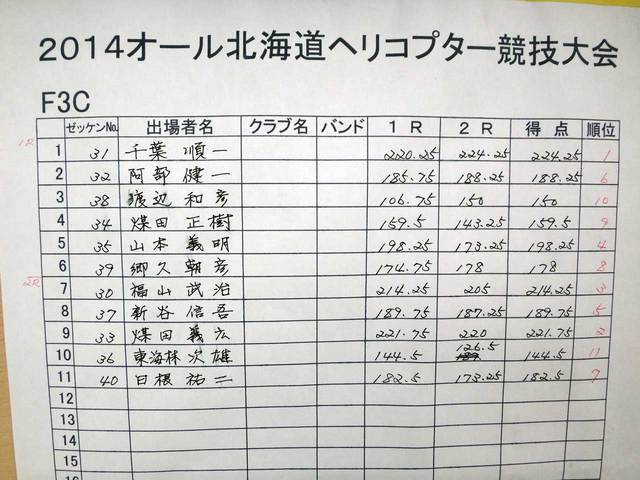 2014オール北海道ヘリコプター競技大会
F3C
ゼッケンNo. 出場者名 クラブ名 バンド 1R 2R 得点 順位
1R
1 31 千葉 順一 220.25 224.25 224.25 1
2 32 阿部 健一 185.75 188.25 188.25 6
3 38 渡辺 和彦 106.75 150 150 10
4 34 煤田 正樹 159.5 143.25 159.5 9
5 35 山本 義明 198.25 173.25 198.25 4
6 39 郷久 朝彦 174.75 178 178 8
2R
7 30 福山 武治 214.25 205 214.25 3
8 37 新谷 信吾 189.75 187.25 189.75 5
9 33 煤田 義広 221.75 220 221.75 2
10 36 東海林 次雄 144.5 126.5 144.5 11
11 40 日根 祐二 182.5 173.25 182.5 7
12
13
14
15
16